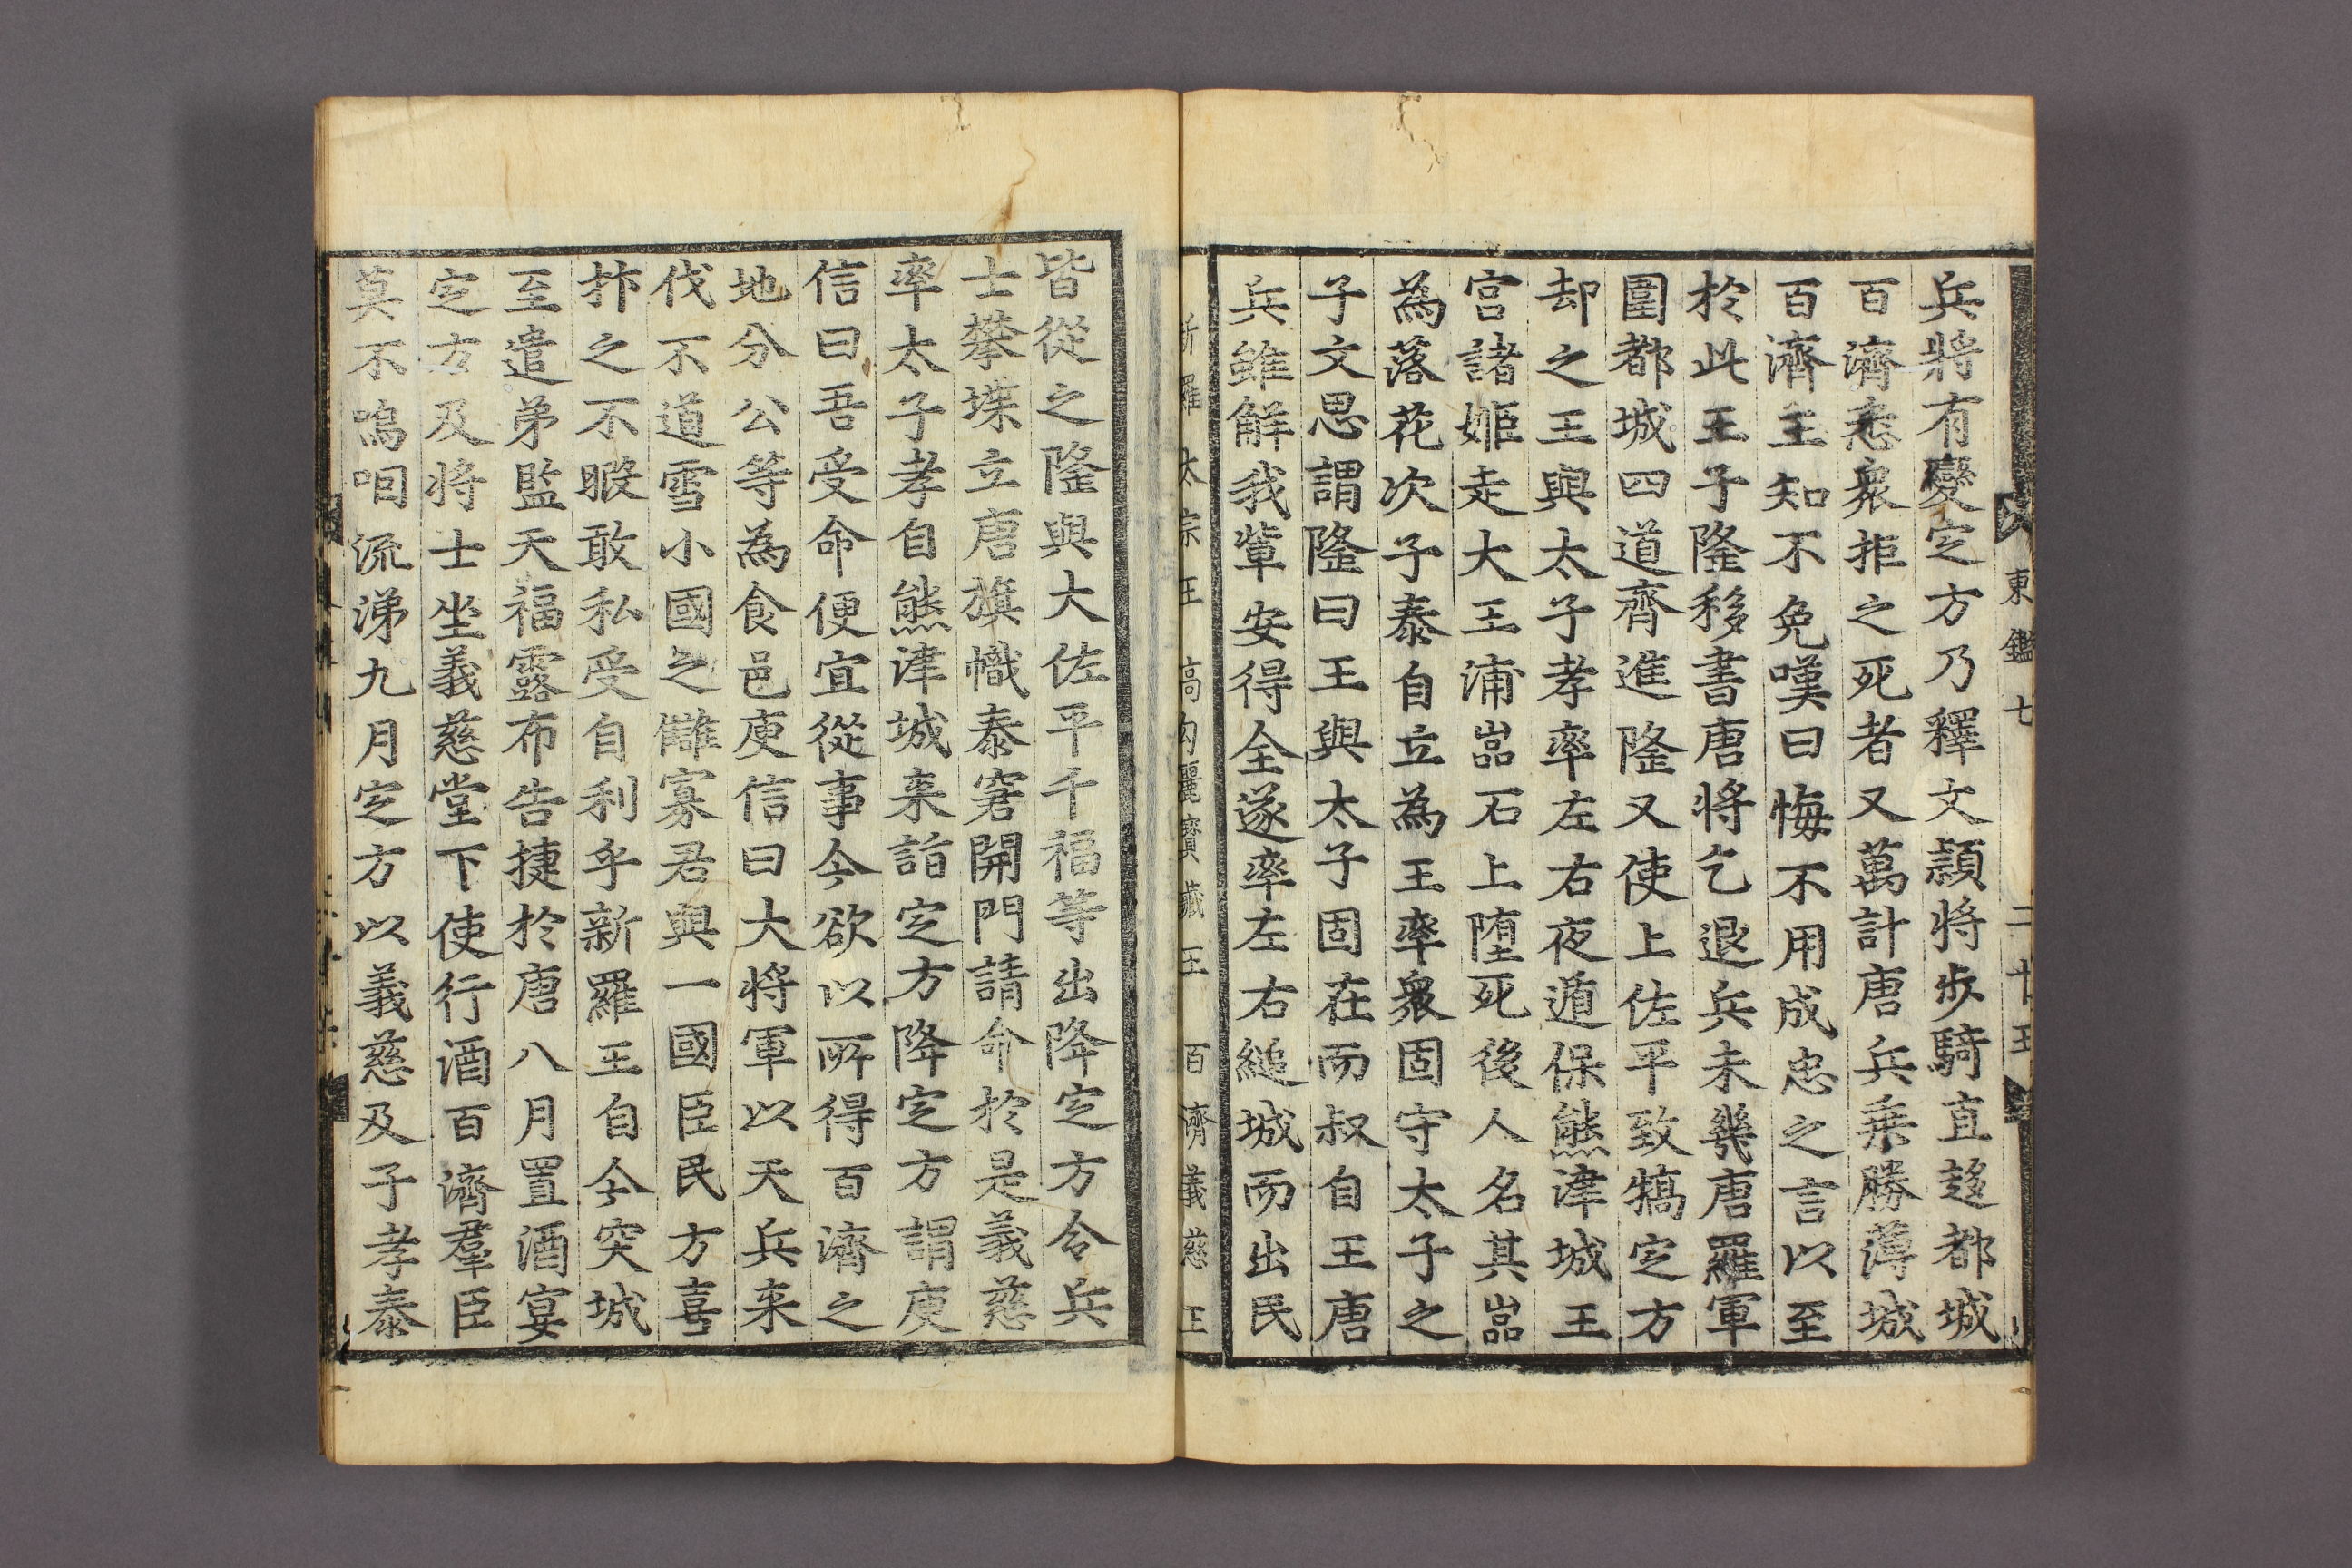 東鑑七
二十五
兵將有變定方乃釋文頴將步騎直趍都城
百濟悉衆拒之死者又萬計唐兵乗勝薄城
百濟主知不免嘆曰悔不用成忠之言以至
於此王子隆移書唐將乞退兵未幾唐羅軍
圍都城四道齊進隆又使上佐平致犒定方
却之王與太子孝率左右夜遁保熊津城王
宮諸姬走大王浦嵓石上墮死後人名其嵓
為落花次子泰自立為王率衆固守太子之
子文思謂隆曰王與太子固在而叔自王唐
兵雖解我軰安得全遂率左右縋城而出民
新羅太宗王 高句麗寶藏王 百濟義慈王
皆從之隆與大佐平千福等出降定方令兵
士攀堞立唐旗幟泰窘開門請命於是義慈
率太子孝自熊津城来詣定方降定方謂庾
信曰吾受命便宜從事今欲以所得百濟之
地分公等為食邑庾信曰大将軍以天兵来
伐不道雪小國之讎寡君與一國臣民方喜
抃之不暇敢私受自利乎新羅王自今突城
至遣弟監天福露布告捷於唐八月置酒宴
定方及将士坐義慈堂下使行酒百濟羣臣
莫不嗚咽流涕九月定方以義慈及子孝泰